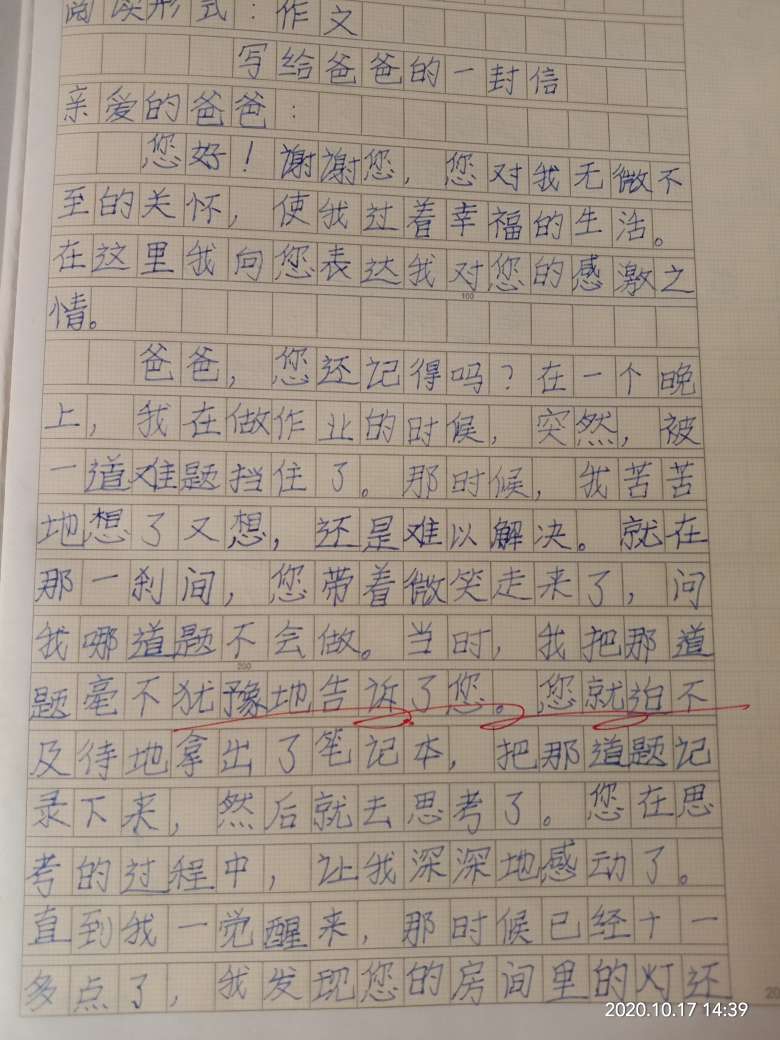 阅读形式：作文
写给爸爸的一封信
亲爱的爸爸：
您好！谢谢您，您对我无微不
至的关怀，使我过着幸福的生活。
在这里我向您表达我对您的感激之
100
情。
爸爸，您还记得吗？在一个晚
上，我在做作业的时候，突然，被
一道难题挡住了。那时候，我苦苦
地想了又想，还是难以解决。就在
那一刹间，您带着微笑走来了，问
我哪道题不会做。当时，我把那道
200
题毫不犹豫地告诉了您。您就迫不
及待地拿出了笔记本，把那道题记
录下来，然后就去思考了。您在思
考的过程中，让我深深地感动了。
直到我一觉醒来，那时候已经十一
多点了，我发现您的房间里的灯还
2020.10.17 14:39